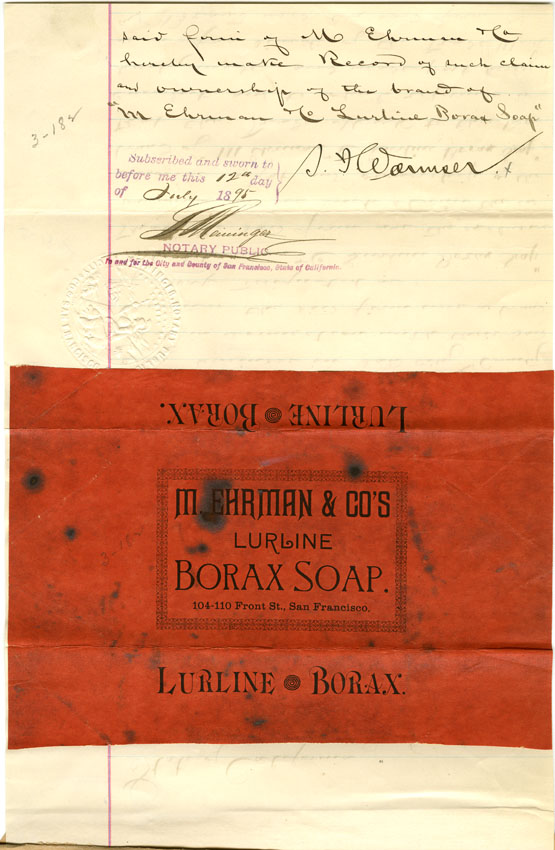 said firm of M Ehrman & Co
hereby make Record of such claim
and ownership of the brand of
"M Ehrman & Co Lurline Borax Soap"
3-182
Subscribed and sworn to
before me this 12th day
of July 1895
S. I. Wormser
NOTARY PUBLIC
In and for the City and County of San Francisco, State of California.
LURLINE BORAX.
M. EHRMAN & CO'S
LURLINE
BORAX SOAP.
104-110 Front St., San Francisco.
LURLINE BORAX.